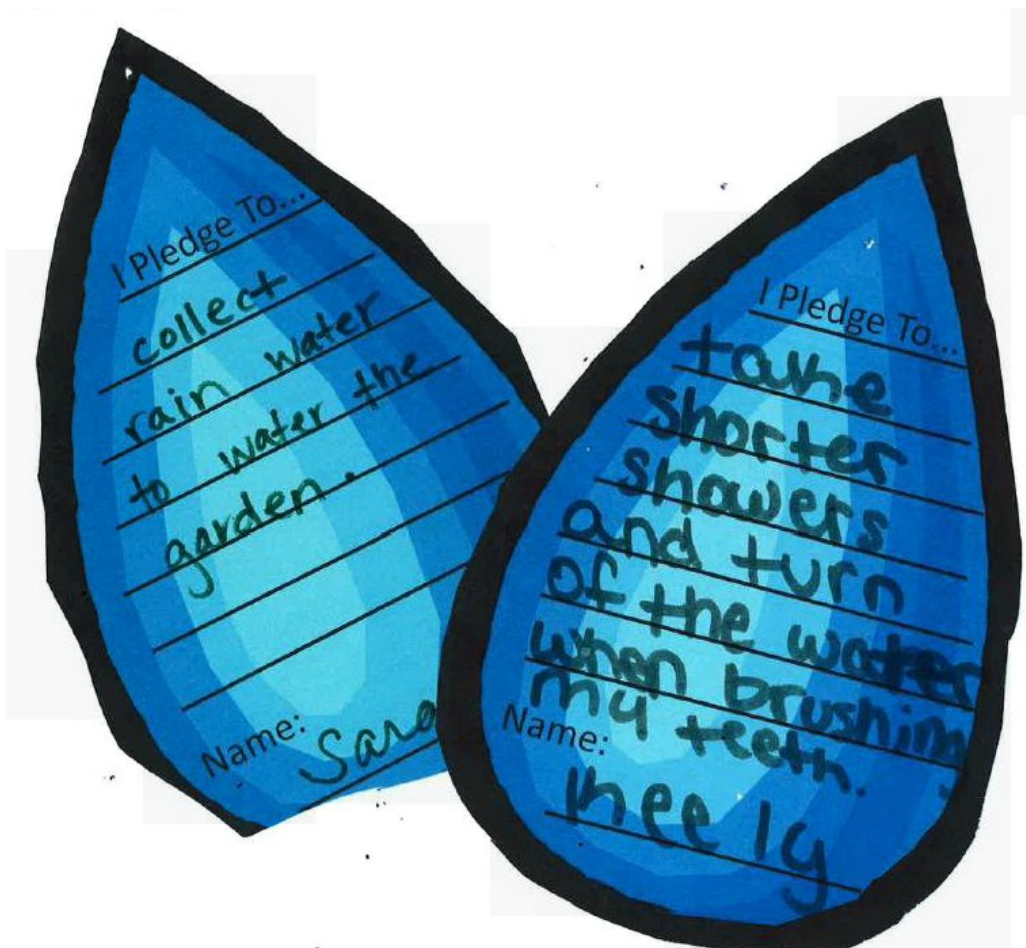 I Pledge To...
collect
rain water
to water the
garden.
Name: Sara
I Pledge To...
take
shorter
showers
and turn
of the water
when brushing
my teeth.
Name: